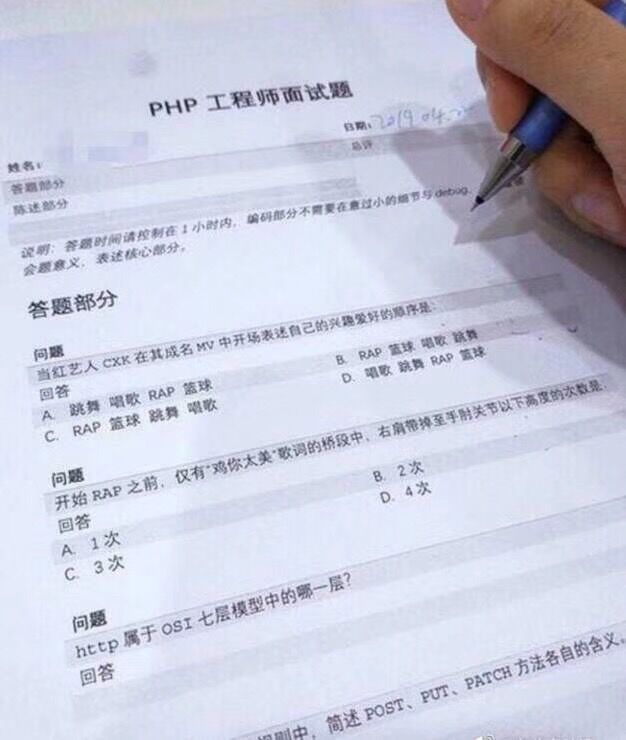 PHP 工程师面试题
日期: 2019.04.2
姓名:
总评
答题部分
陈述部分
说明: 答题时间请控制在 1 小时内, 编码部分不需要在意过小的细节与 debug,
会题意义, 表述核心部分。
答题部分
问题
当红艺人 CXK 在其成名 MV 中开场表述自己的兴趣爱好的顺序是:
回答
A. 跳舞 唱歌 RAP 篮球
B. RAP 篮球 唱歌 跳舞
C. RAP 篮球 跳舞 唱歌
D. 唱歌 跳舞 RAP 篮球
问题
开始 RAP 之前, 仅有"鸡你太美"歌词的桥段中, 右肩带掉至手肘关节以下高度的次数是:
回答
A. 1 次
B. 2 次
C. 3 次
D. 4 次
问题
http 属于 OSI 七层模型中的哪一层?
回答
规则中, 简述 POST、PUT、PATCH 方法各自的含义。